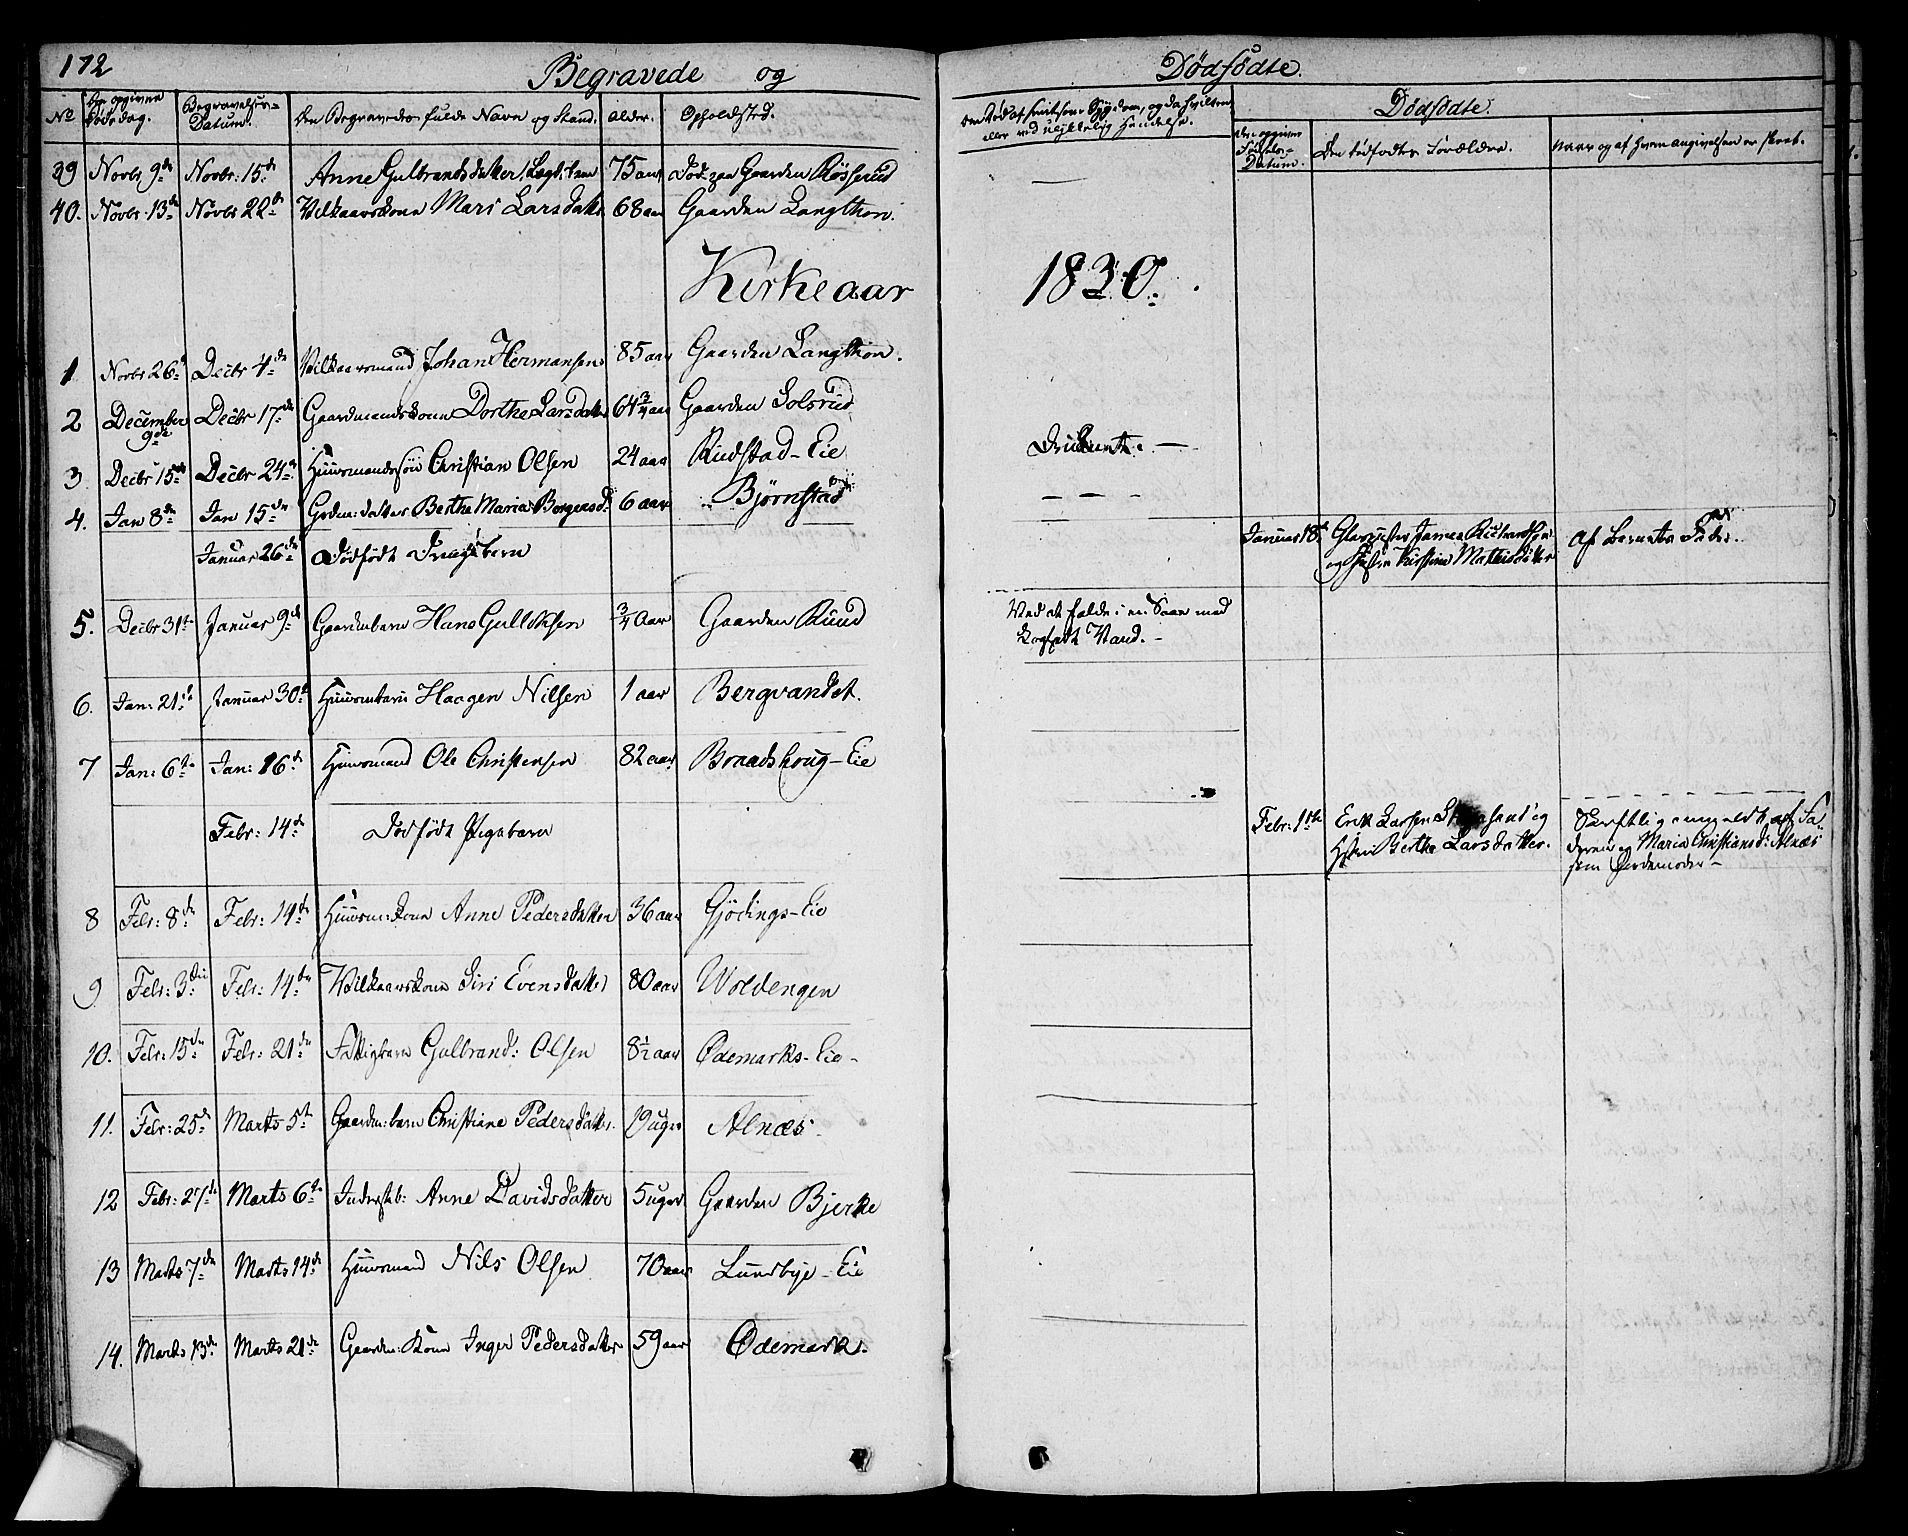 172 Begravede og Dødfødte.
No Den opgivne Dødsdag. Begravelses- Datum. Den Begravedes fulde Navn og Stand. Alder. Opholdsted.
Dødfødte.
Den opgivne Fødsels- Datum. Den dødfødtes Forældre. Naar og af hvem angivelsen er skeet.
39 Novbr 9de Novbr: 15de Anne Gulbrandsdatter 75 aar Gaarden Rösserud
40. Novbr 13de Novbr 22de Vilkaarskone Mari Larsdatter 68 aar Gaarden Langthon.
Kirkeaar 1830.
1 Novbr 26de Decbr 4de Vilkaarsmand Johan Hermansen 85 aar Gaarden Langthon.
2 December 9de Decbr 17de Gaardmandskone Dorthe Larsdatter 64 3/4 aar Gaarden Solsrud
3 Decbr 15de Decbr 24de Huusmandssøn Christian Olsen 24 aar Rudstad-Eie Druknet. —
4. Jan 8de Jan 15de Grdm: datter Berthe Maria Borgersd: 6 aar Bjørnstad
Januar 26de Dødfødt Drengebarn Januar 18de James Richardsen
og Kirstine Mathisdatter Af Barnets Fader.
5. Decbr 31te Januar 9de Gaardmbarn Hans Gulliksen 3/4 Aar Gaarden Ruud Ved at falde i en Saae med
koghedt Vand. —
6. Jan: 21de Januar 30te Huusmbarn Haagen Nilsen 1 aar Bergvandet.
7 Jan: 6te Jan: 16de Huusmand Ole Christensen 82 aar Braadshoug-Eie
Febr: 14de Dødfødt Pigebarn Febr: 11te Erik Larsen
Berthe Larsdatter. Skriftlig anmeldt af Fa-
deren og Maria Christiansd: Alnæs
som Jordemoder —
8 Febr: 8de Febr: 14de Huusm: kone Anne Pedersdatter 36 aar Gjödings-Eie
9 Febr: 3die Febr: 14de Vilkaarskone Siri Evensdatter 80 aar Woldengen
10. Febr: 15de Febr: 21de Fattigbarn Gulbrand: Olsen 8 1/2 aar Ødemarks-Eie-
11. Febr: 25de Marts 5te Gaardm: barn Christiane Pedersdatter. 19 uger Alnæs.
12 Febr: 27de Marts 6te Anne Davidsdatter 5 uger Gaarden Bjerke
13 Marts 7de Marts 14de Huusmand Nils Olsen 70 aar Lundbye-Eie
14. Marts 13de Marts 21de Gaardm: Kone Inger Pedersdatter 59 aar Ødemark.